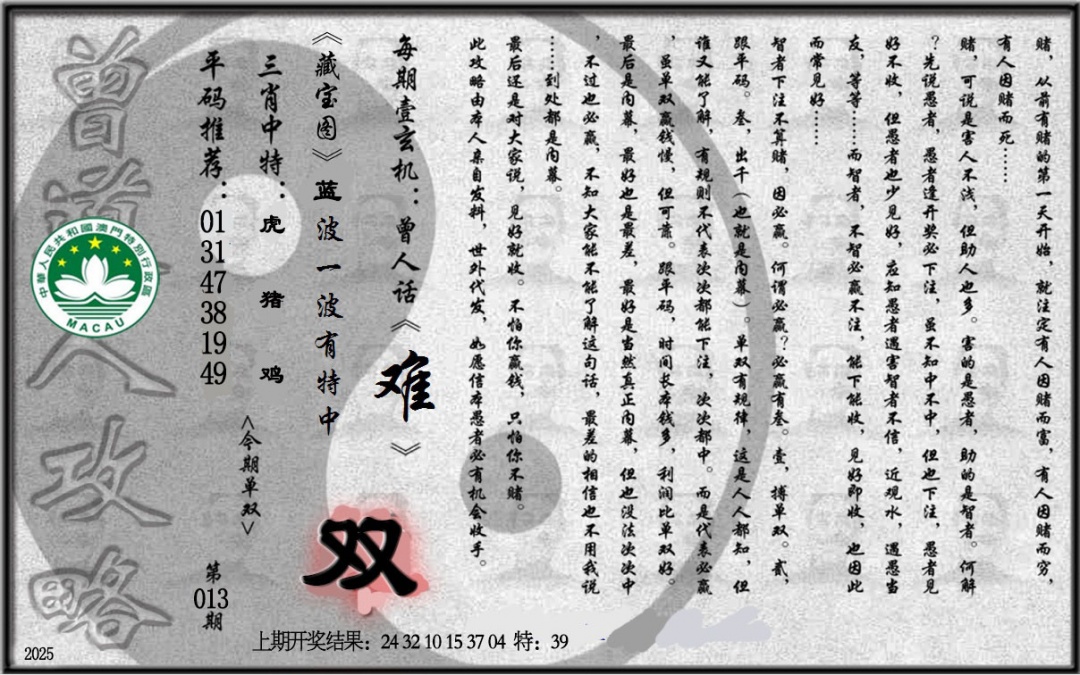 赌，从前有赌的第一天开始，就注定有人因赌而富，有人因赌而穷，
有人因赌而死……
赌，可说是害人不浅，但助人也多。害的是愚者，助的是智者。何解
？先说愚者，愚者逢开奖必下注，虽不知中不中，但也下注，愚者见
好不收，但愚者也少见好，应知愚者遇害智者不信，近观水，遇愚当
友，等等……而智者，不智必赢不注，能下能收，见好即收，也因此
而常见好……
智者下注不算赌，因必赢。何谓必赢？必赢有叁。壹，搏单双。贰，
跟平码。叁，出千（也就是内幕）。单双有规律，这是人人都知，但
谁又能了解，有规则不代表次次都能下注，次次都中。而是代表必赢
，虽单双赢钱慢，但可靠。跟平码，时间长本钱多，利润比单双好。
最后是内幕，最好也是最差，最好是当然真正内幕，但也没法次次中
，不过也必赢，不知大家能不能了解这句话，最差的相信也不用我说
……到处都是内幕。
最后还是对大家说，见好就收。不怕你赢钱，只怕你不赌。
此攻略由本人亲自发料，世外代发，如愿信本愚者必有机会收手。
每期壹玄机：曾人话《难》
《藏宝图》蓝波一波有特中
双
三肖中特：虎 猪 鸡
<今期单双>
平码推荐：01 31 47 38 19 49
第013期
曾道人攻略
中華人民共和國澳門特別行政區
MACAU
上期开奖结果：24 32 10 15 37 04 特：39
2025